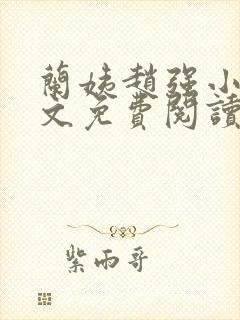 蘭姨趙强小
文免費閱讀
紫雨哥